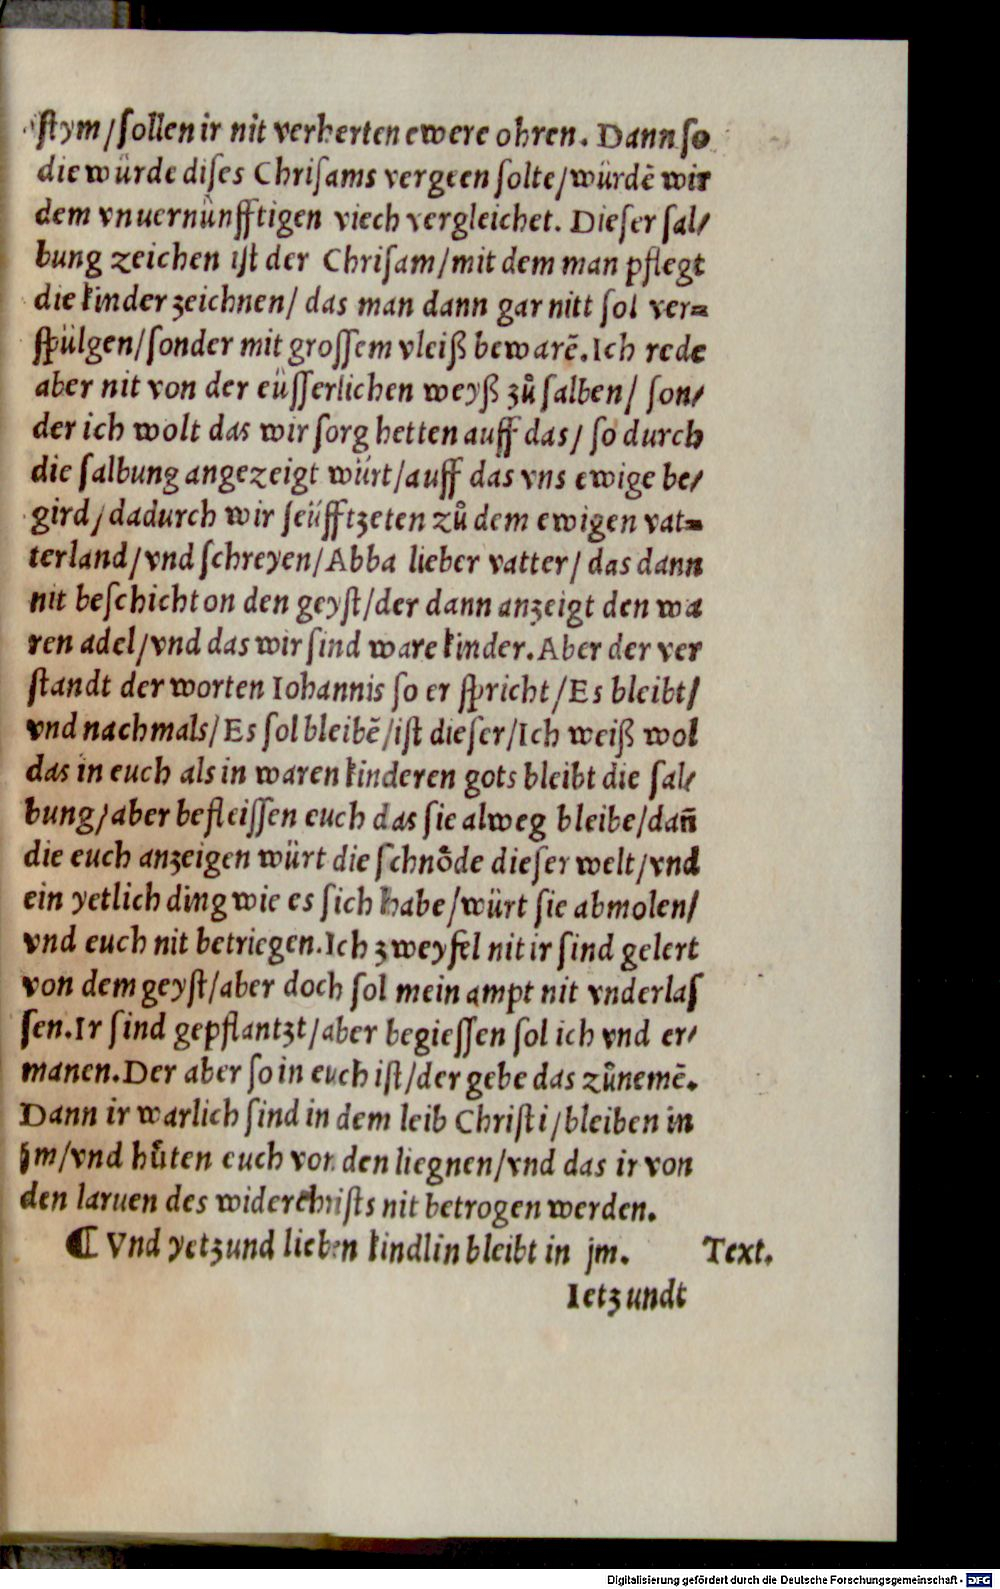 ſtym/ſollen ir nit verherten ewere ohren. Dann ſo
die würde diſes Chriſams vergeen ſolte/würdē wir
dem vnuernünfftigen viech vergleichet. Dieſer ſal/
bung zeichen iſt der Chriſam/mit dem man pflegt
die kinder zeichnen/ das man dann gar nitt ſol ver⸗
ſpülgen/ſonder mit groſſem vleiß bewarē.Ich rede
aber nit von der eüſſerlichen weyß zů ſalben/ ſon/
der ich wolt das wir ſorg hetten auff das/ ſo durch
die ſalbung angezeigt würt/auff das vns ewige be/
gird/dadurch wir ſeüfftzeten zů dem ewigen vat⸗
terland/vnd ſchreyen/Abba lieber vatter/ das dann
nit beſchicht on den geyſt/der dann anzeigt den wa
ren adel/vnd das wir ſind ware kinder.Aber der ver
ſtandt der worten Iohannis ſo er ſpricht/Es bleibt/
vnd nachmals/Es ſol bleibē/iſt dieſer/Ich weiß wol
das in euch als in waren kinderen gots bleibt die ſal/
bung/aber befleiſſen euch das ſie alweg bleibe/dañ
die euch anzeigen würt die ſchnöde dieſer welt/vnd
ein yetlich ding wie es ſich habe/würt ſie abmolen/
vnd euch nit betriegen.Ich zweyfel nit ir ſind gelert
von dem geyſt/aber doch ſol mein ampt nit vnderlaſ
ſen.Ir ſind gepflantzt/aber begieſſen ſol ich vnd er/
manen.Der aber ſo in euch iſt/der gebe das zůnemē.
Dann ir warlich ſind in dem leib Chriſti/bleiben in
jm/vnd hůten euch von den liegnen/vnd das ir von
den laruen des widerchriſts nit betrogen werden.
¶ Vnd yetzund lieben kindlin bleibt in jm. Text.
Ietzundt
Digitalisierung gefördert durch die Deutsche Forschungsgemeinschaft - DFG